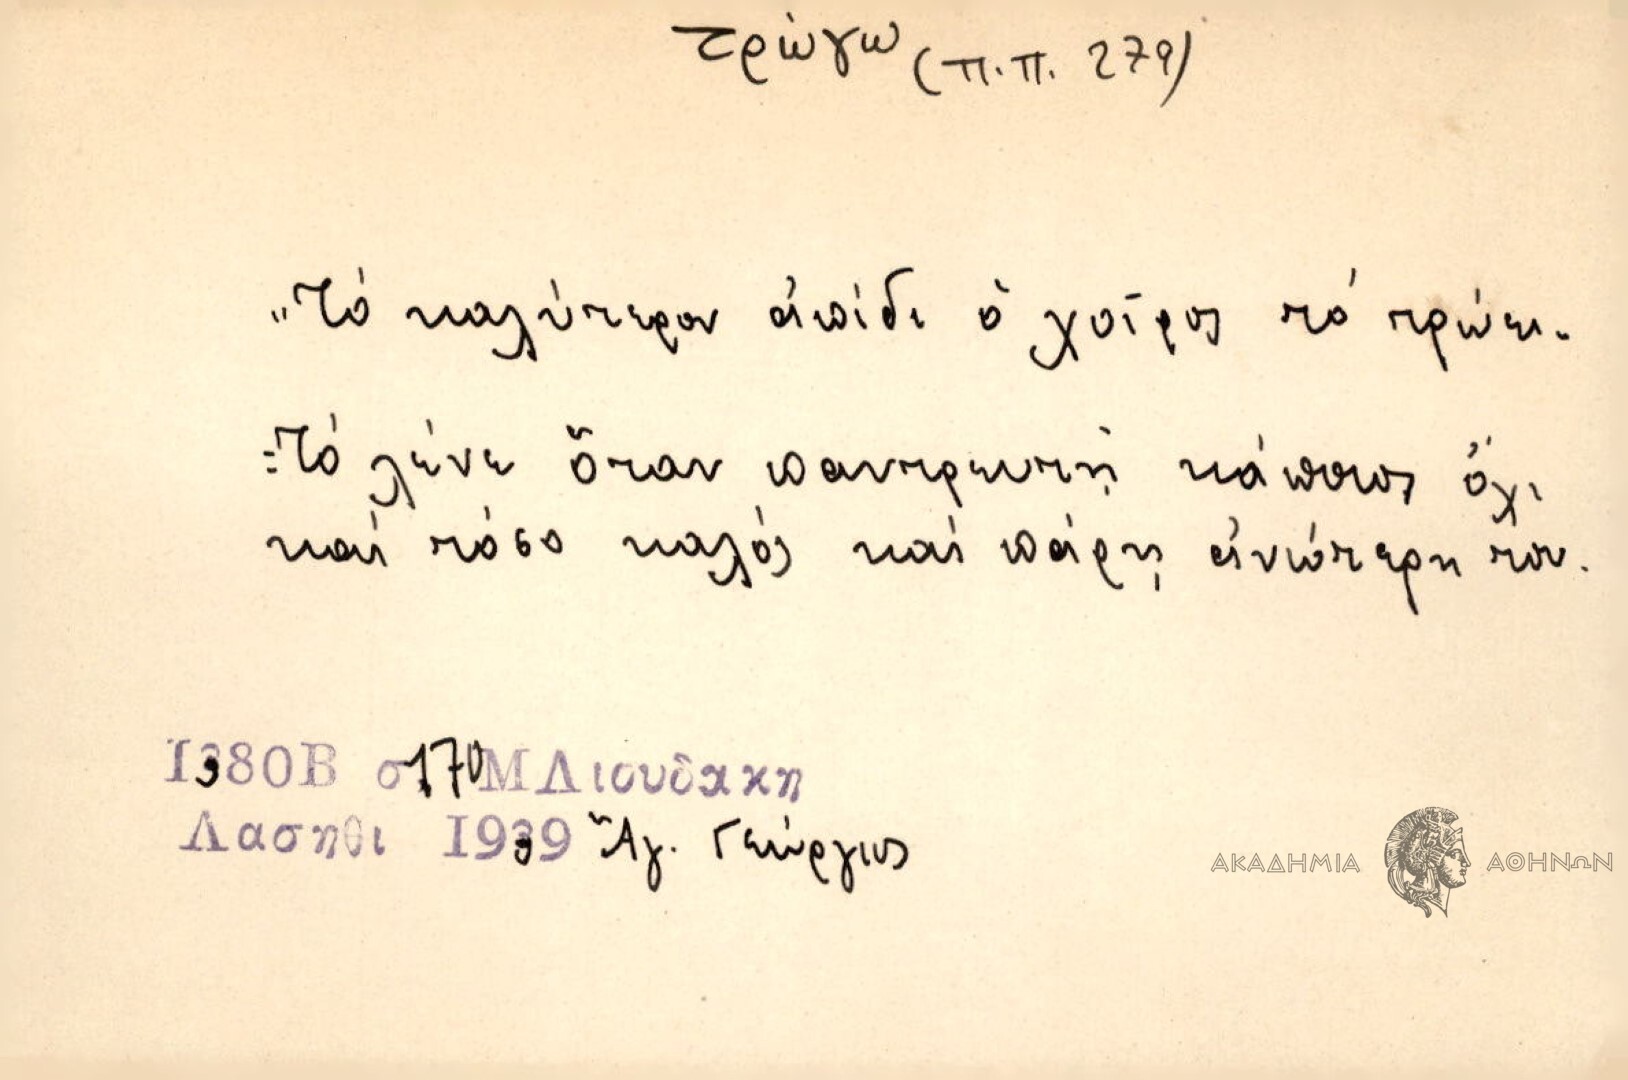 τρώγω (π.π. 279)
"Τό καλύτερον ἀπίδι ὁ χοῖρος τό τρώει.
=Τό λένε ὅταν παντρευτῇ κάποιος ὄχι
καί τόσο καλός καί πάρῃ ἀνώτερη του.
1380Β σ170 Μ Λιουδακη
Λασηθι 1939 Ἅγ. Γεώργιος
ΑΚΑΔΗΜΙΑ ΑΘΗΝΩΝ